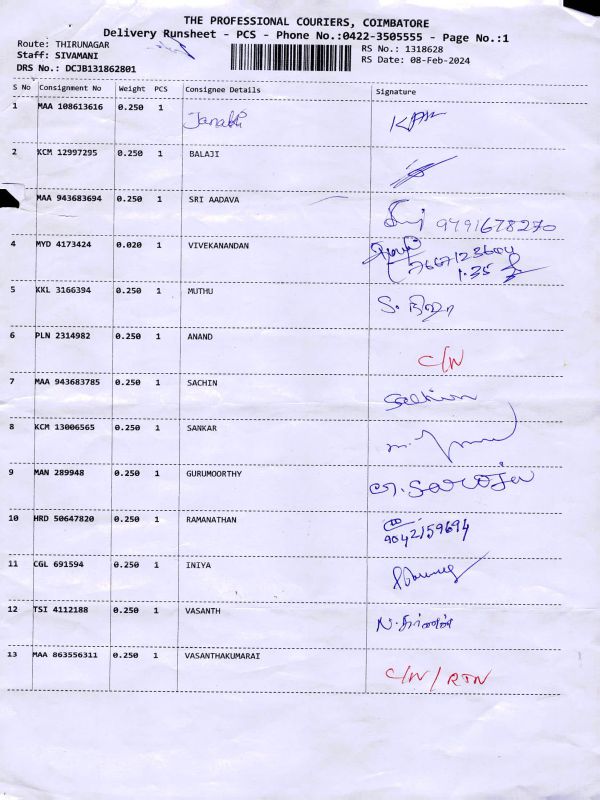 THE PROFESSIONAL COURIERS, COIMBATORE
Delivery Runsheet - PCS - Phone No.:0422-3505555 - Page No.:1
Route: THIRUNAGAR RS No.: 1318628
Staff: SIVAMANI RS Date: 08-Feb-2024
DRS No.: DCJB131862801
S No Consignment No Weight PCS Consignee Details Signature
1 MAA 108613616 0.250 1
2 KCM 12997295 0.250 1 BALAJI
MAA 943683694 0.250 1 SRI AADAVA 9491678270
4 MYD 4173424 0.020 1 VIVEKANANDAN 7667123604
1.35
5 KKL 3166394 0.250 1 MUTHU
6 PLN 2314982 0.250 1 ANAND C/N
7 MAA 943683785 0.250 1 SACHIN Sachin
8 KCM 13006565 0.250 1 SANKAR
9 MAN 289948 0.250 1 GURUMOORTHY G. Saroja
10 HRD 50647820 0.250 1 RAMANATHAN 9042159694
11 CGL 691594 0.250 1 INIYA
12 TSI 4112188 0.250 1 VASANTH
13 MAA 863556311 0.250 1 VASANTHAKUMARAI C/N / RTN